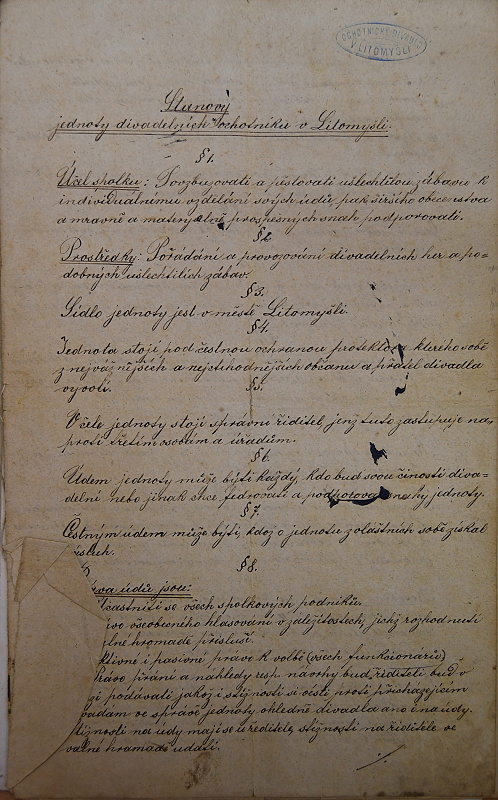 OCHOTNICKÉ DIVADLO
V LITOMYŠLI
Stanovy
jednoty divadelních ochotníků v Litomyšli.
§ 1.
Účel spolku: Povzbuzovati a pěstovati ušlechtilou zábavu k
individuálnímu vzdělání svých údů, pak širšího obecenstva
a mravně a materyelně prospěšných snah podporovati.
§ 2
Prostředky: Pořádání a provozování divadelních her a po-
dobných ušlechtilých zábav.
§ 3.
Sídlo jednoty jest v městě Litomyšli.
§ 4.
Jednota stojí pod čestnou ochranou protektora kterého sobě
z nejvážnějších a nejctihodnějších občanů a přátel divadla
vyvolí.
§ 5.
V čele jednoty stojí správní řiditel jenž tuto zastupuje na
proti třetím osobám a úřadům.
§ 6.
Údem jednoty může býti každý, kdo buď svou čiností diva-
delní nebo jinak chce fedrovati a podporovati snahy jednoty.
§ 7.
Čestným údem může býti, kdož o jednotu zvláštních sobě získal
§ 8.
va údů jsou:
častniti se všech spolkových podniků.
vo všeobecného hlasování v záležitostech, jichž rozhodnutí
lné hromadě přísluší.
ktivné i pasivné právo k volbě (všech funkcionářů)
rávo přání a náhledy resp. návrhy buď řiditeli buď v
podávati jakož i stížnosti si vésti proti přicházejícím
vadám ve správě jednoty ohledně divadla ano i na údy.
tížnosti na údy mají se u ředitele, stížnosti na řiditele ve
valné hromadě udati.